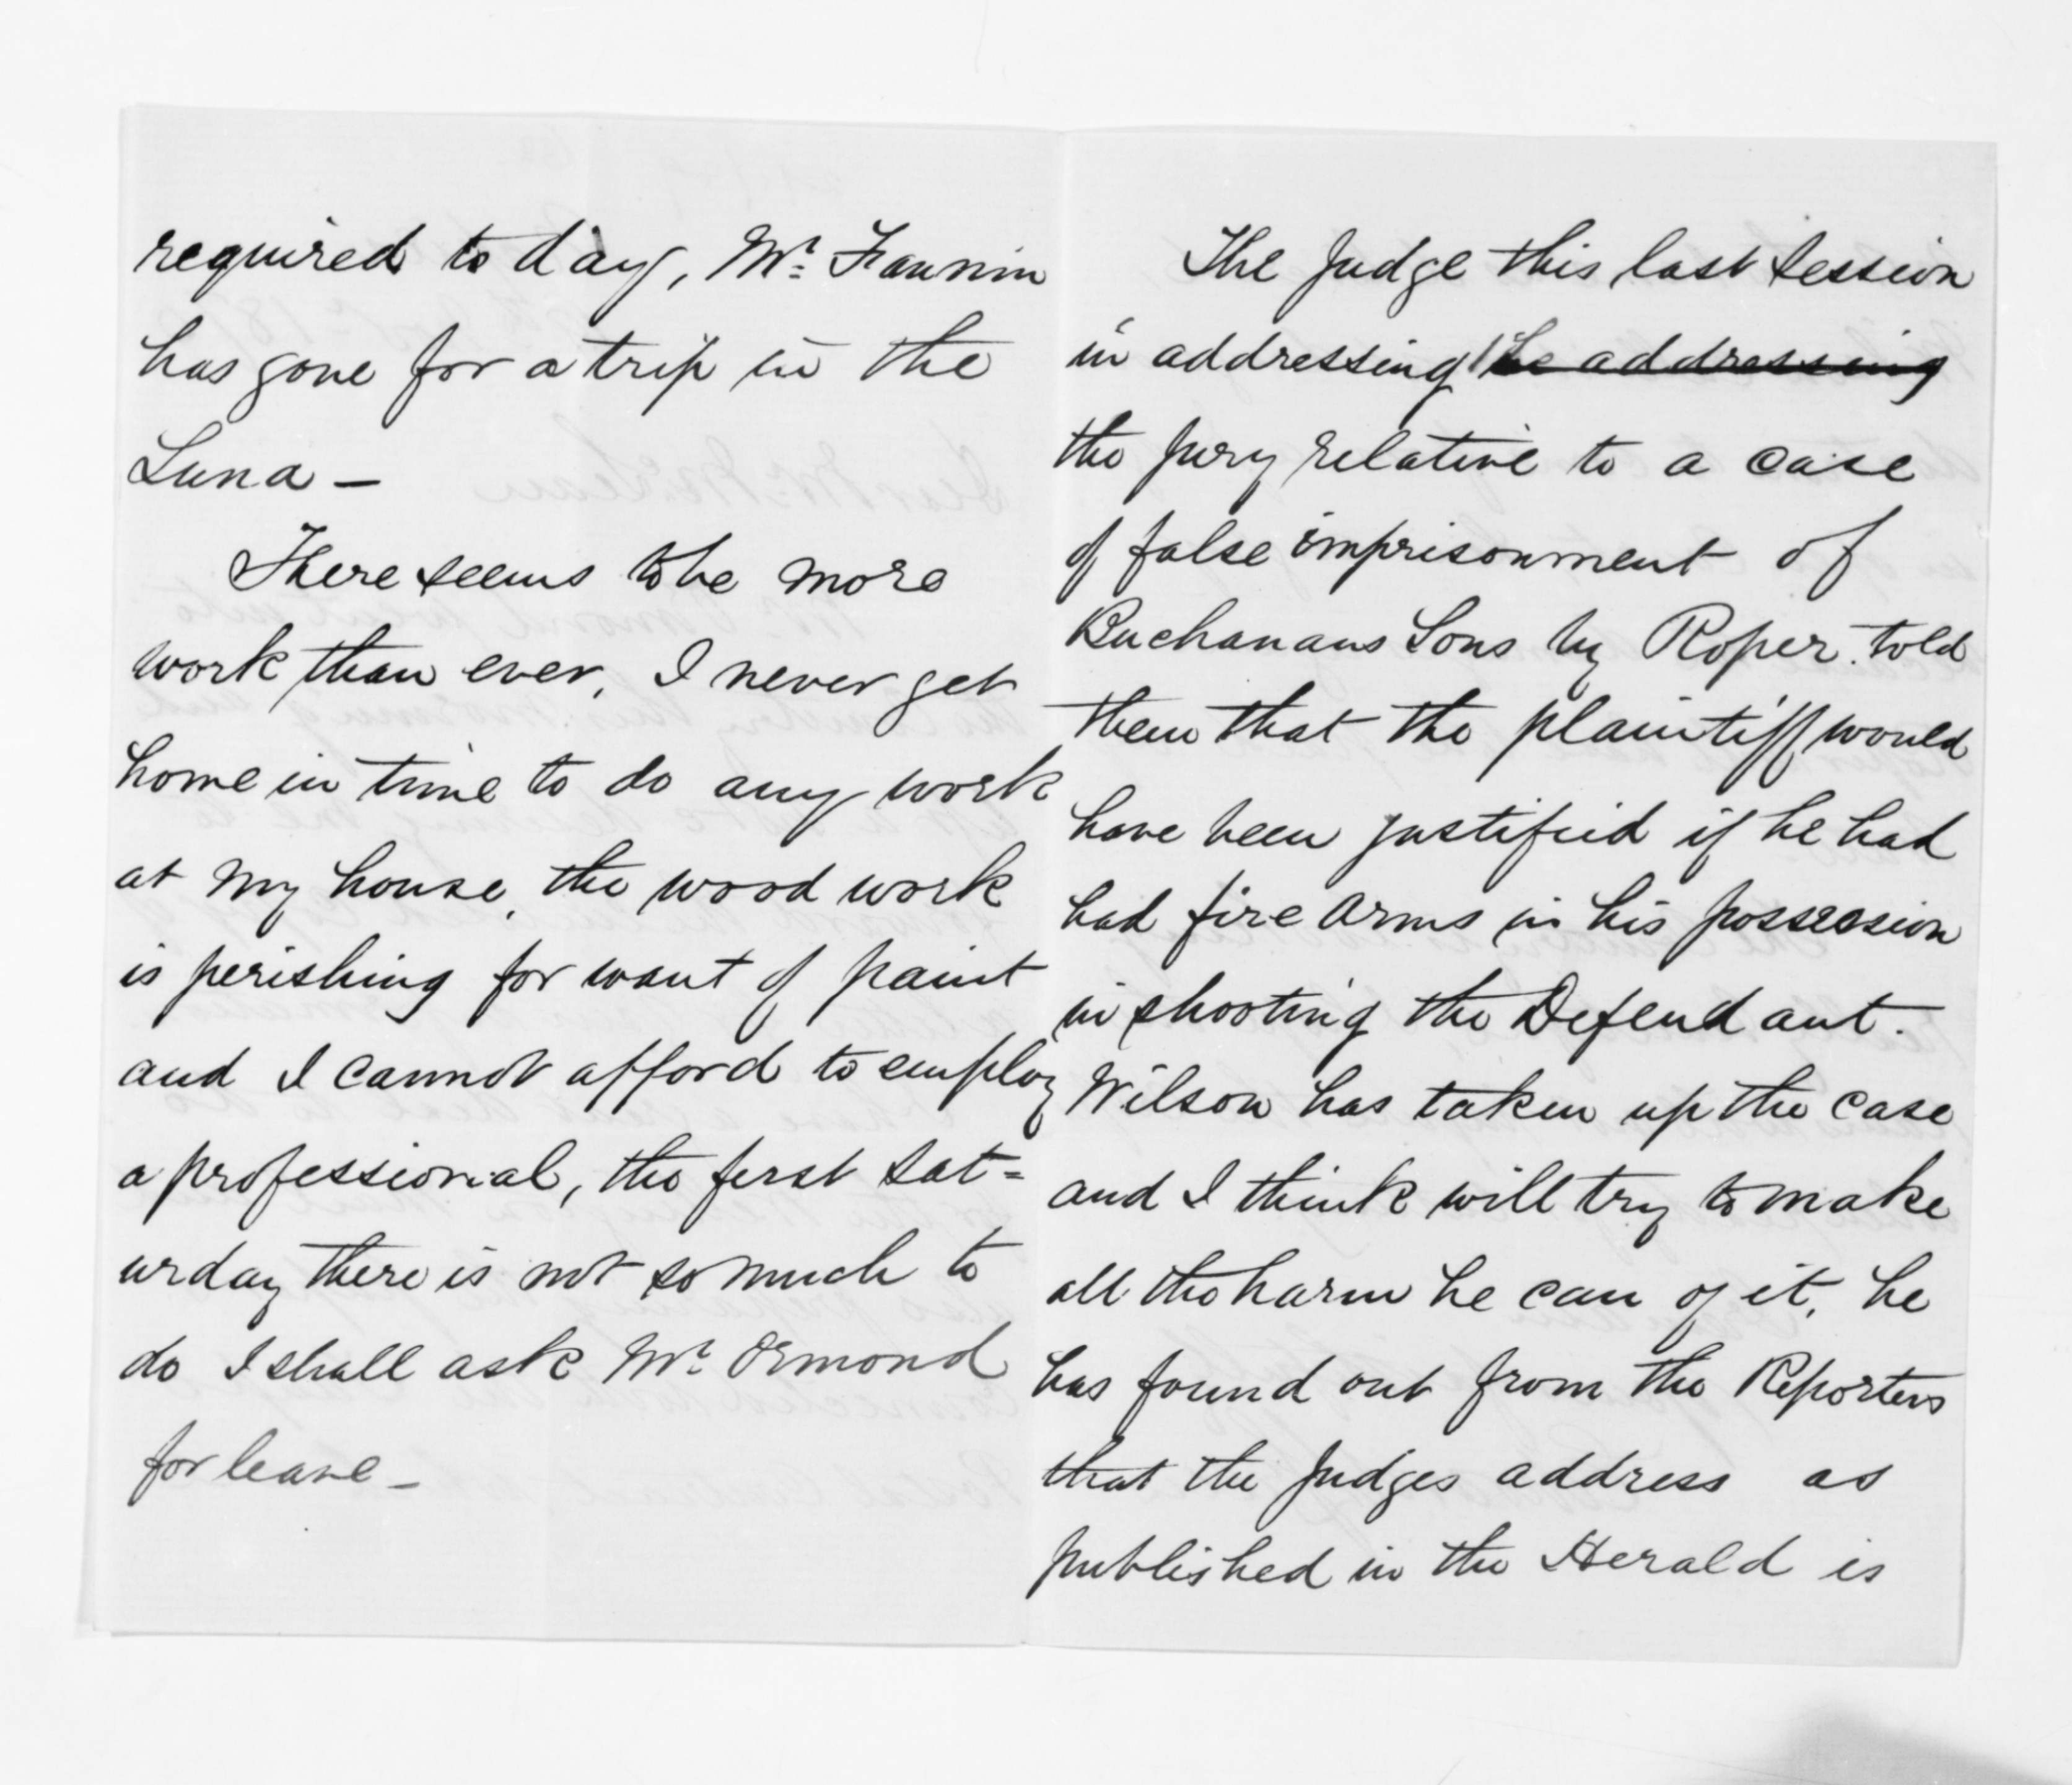 required to day, Mr. Fannin
has gone for a trip in the
Luna —
There seems to be more
work than ever, I never get
home in time to do any work
at my house, the wood work
is perishing for want of paint
and I cannot afford to employ
a professional, the first Sat=
urday there is not so much to
do I shall ask Mr. Ormond
for leave —
The Judge this last Session
in addressing he addressing
the jury relative to a case
of false imprisonment of
Buchanans Sons by Roper. told
them that the plaintiff would
have been justified if he had
had fire arms in his possession
in shooting the Defendant.
Wilson has taken up the case
and I think will try to make
all the harm he can of it, he
has found out from the Reporters
that the Judges address as
published in the Herald is